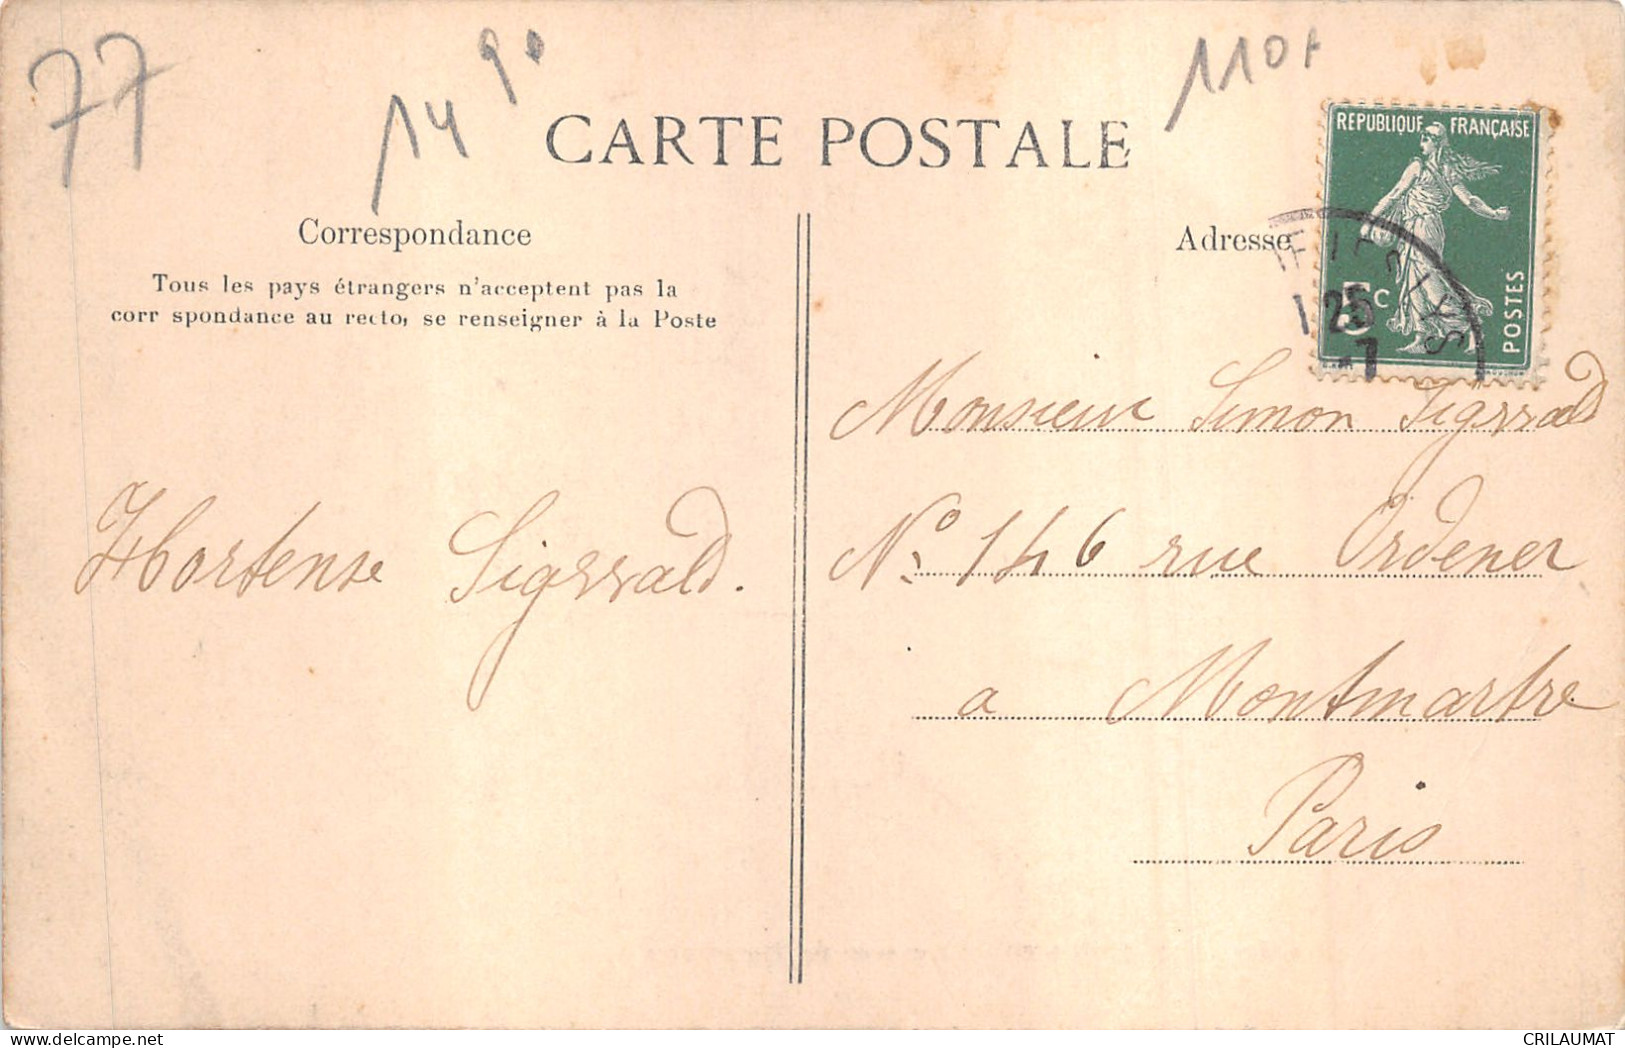 77
14
90
110f
CARTE POSTALE
REPUBLIQUE FRANÇAISE
5c
POSTES
25
-7
Correspondance
Tous les pays étrangers n'acceptent pas la
corr spondance au recto, se renseigner à la Poste
Adresse
Hortense Sigrvald.
Monsieur Simon Sigrvald
No. 146 rue Ordener
a Montmartre
Paris
CRILAUMAT